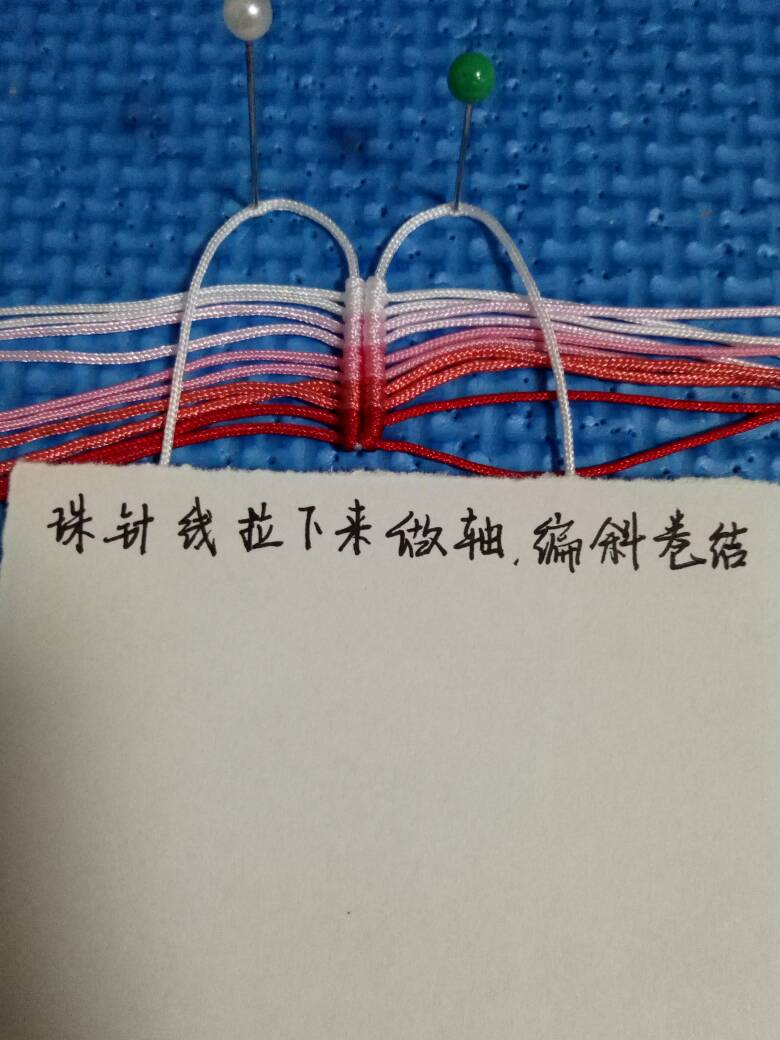 珠针线拉下来做轴,编斜卷结